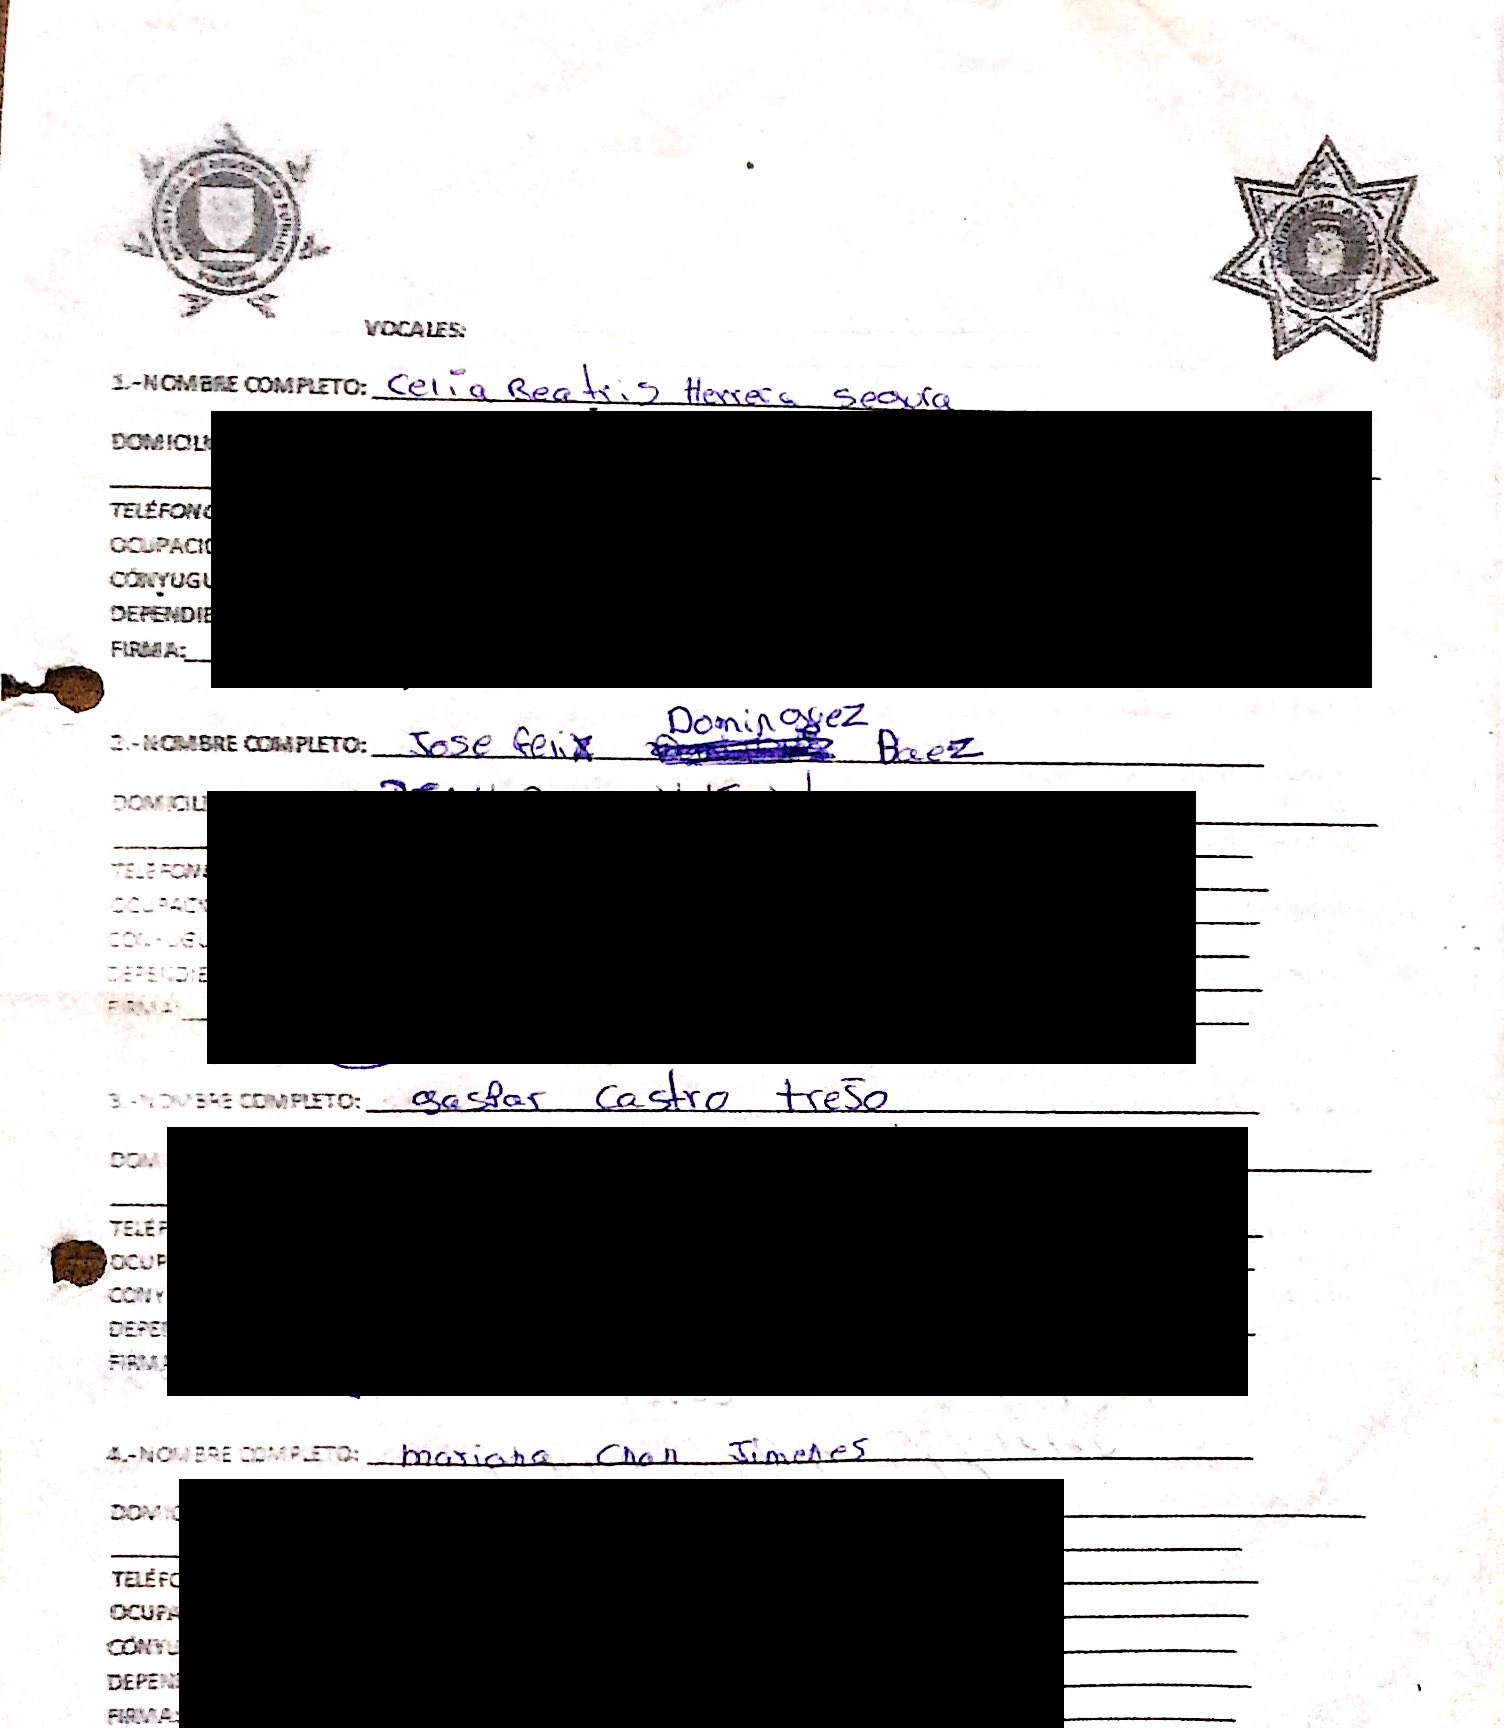 VOCALES:
1.-NOMBRE COMPLETO: Celia Beatris Herrera Segura
DOMICILI
TELÉFONO
OCUPACIO
CÓNYUGU
DEPENDIE
FIRMA:
Dominguez
2.-NOMBRE COMPLETO: Jose felix Baez
DOMICILI
TELEFON
OCUPACI
CONYUGU
DEPENDIE
FIRMA:
3.-NOMBRE COMPLETO: gaspar Castro treJo
DOM
TELÉF
OCUP
CONY
DEPEN
FIRMA
4.-NOMBRE COMPLETO: mariana Chan Jimenes
DOMIC
TELÉFO
OCUPA
CÓNYU
DEPEN
FIRMA: